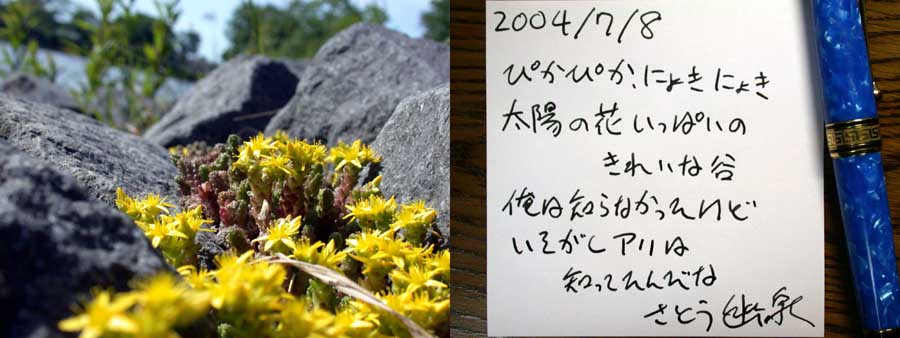 2004/7/8
ぴかぴか、にょきにょき
太陽の花いっぱいの
きれいな谷
俺は知らなかったけど
いそがしアリは
知ってたんだな
さとう